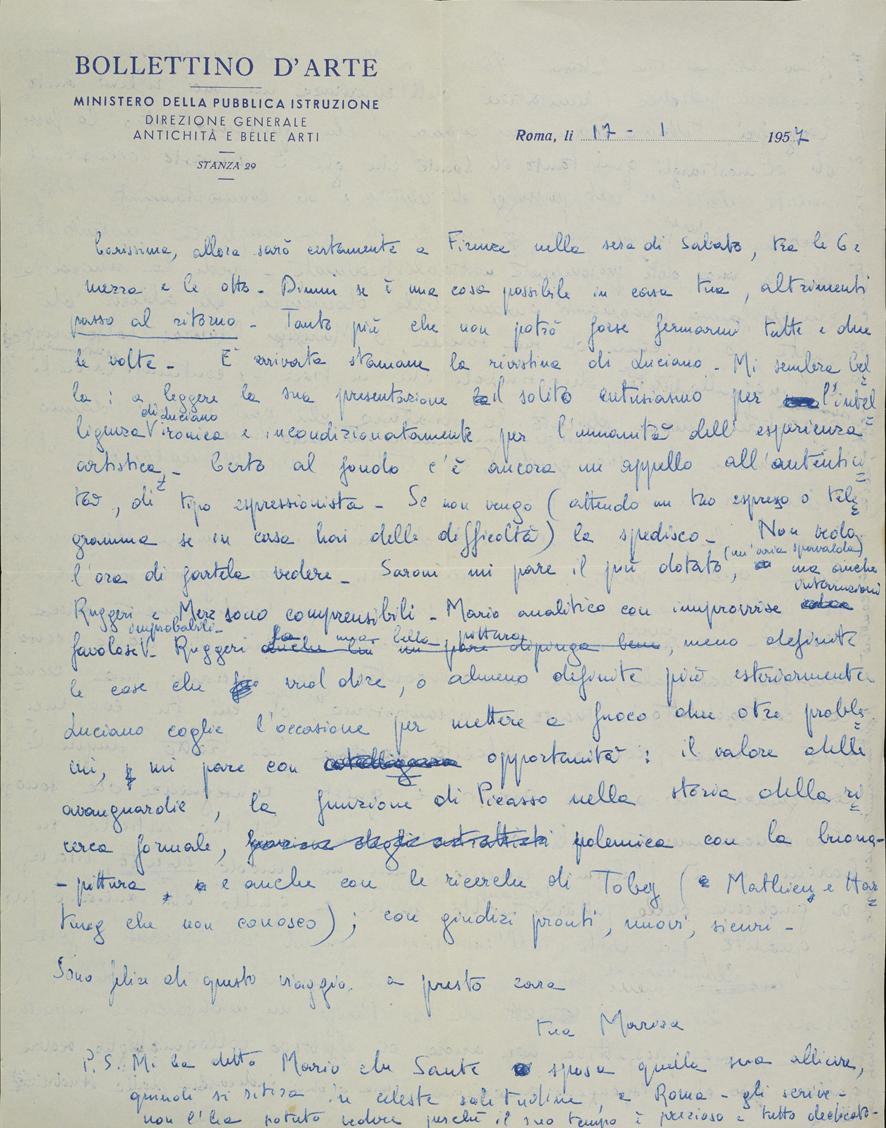 BOLLETTINO D'ARTE
MINISTERO DELLA PUBBLICA ISTRUZIONE
DIREZIONE GENERALE
ANTICHITÀ E BELLE ARTI
STANZA 29
Roma, li 17 - 1 1957
Carissima, allora sarò certamente a Firenze nella sera di Sabato, tra le 6 e
mezza e le otto - Dimmi se è una cosa possibile in casa tua, altrimenti
passo al ritorno - Tanto più che non potrò forse fermarmi tutte e due
le volte - È arrivata stamane la rivistina di Luciano - Mi sembra bel
la : a leggere la sua presentazione il solito entusiasmo per l'intel
ligenza di Luciano ironica e incondizionatamente per l'umanità dell'esperienza
artistica - Certo al fondo c'è ancora un appello all'autentici
tà, di tipo espressionista - Se non vengo (attendo un tuo espresso o tele
gramma se in casa hai delle difficoltà) la spedisco - Non vedo
l'ora di fartela vedere - Saroni mi pare il più dotato, (un'aria spavalda) ma anche
Ruggeri e Merz sono comprensibili - Mario analitico con improvvise intersezioni
favolose improbabili - Ruggeri fa una bella pittura, meno definite
le cose che vuol dire, o almeno definite più esteriormente
Luciano coglie l'occasione per mettere a fuoco due o tre proble
mi, mi pare con opportunità : il valore delle
avanguardie, la funzione di Picasso nella storia della ri
cerca formale, polemica con la buona-
- pittura, e anche con le ricerche di Tobey (Mathieu e Har
tung che non conosco) ; con giudizi pronti, nuovi, sicuri -
Sono felice di questo viaggio. a presto cara
tua Marisa
P.S. Mi ha detto Mario che Sante sposa quella sua allieva,
quindi si ritira in celeste solitudine, a Roma - gli scrive -
non l'ha potuto vedere perché il suo tempo è prezioso e tutto dedicato -